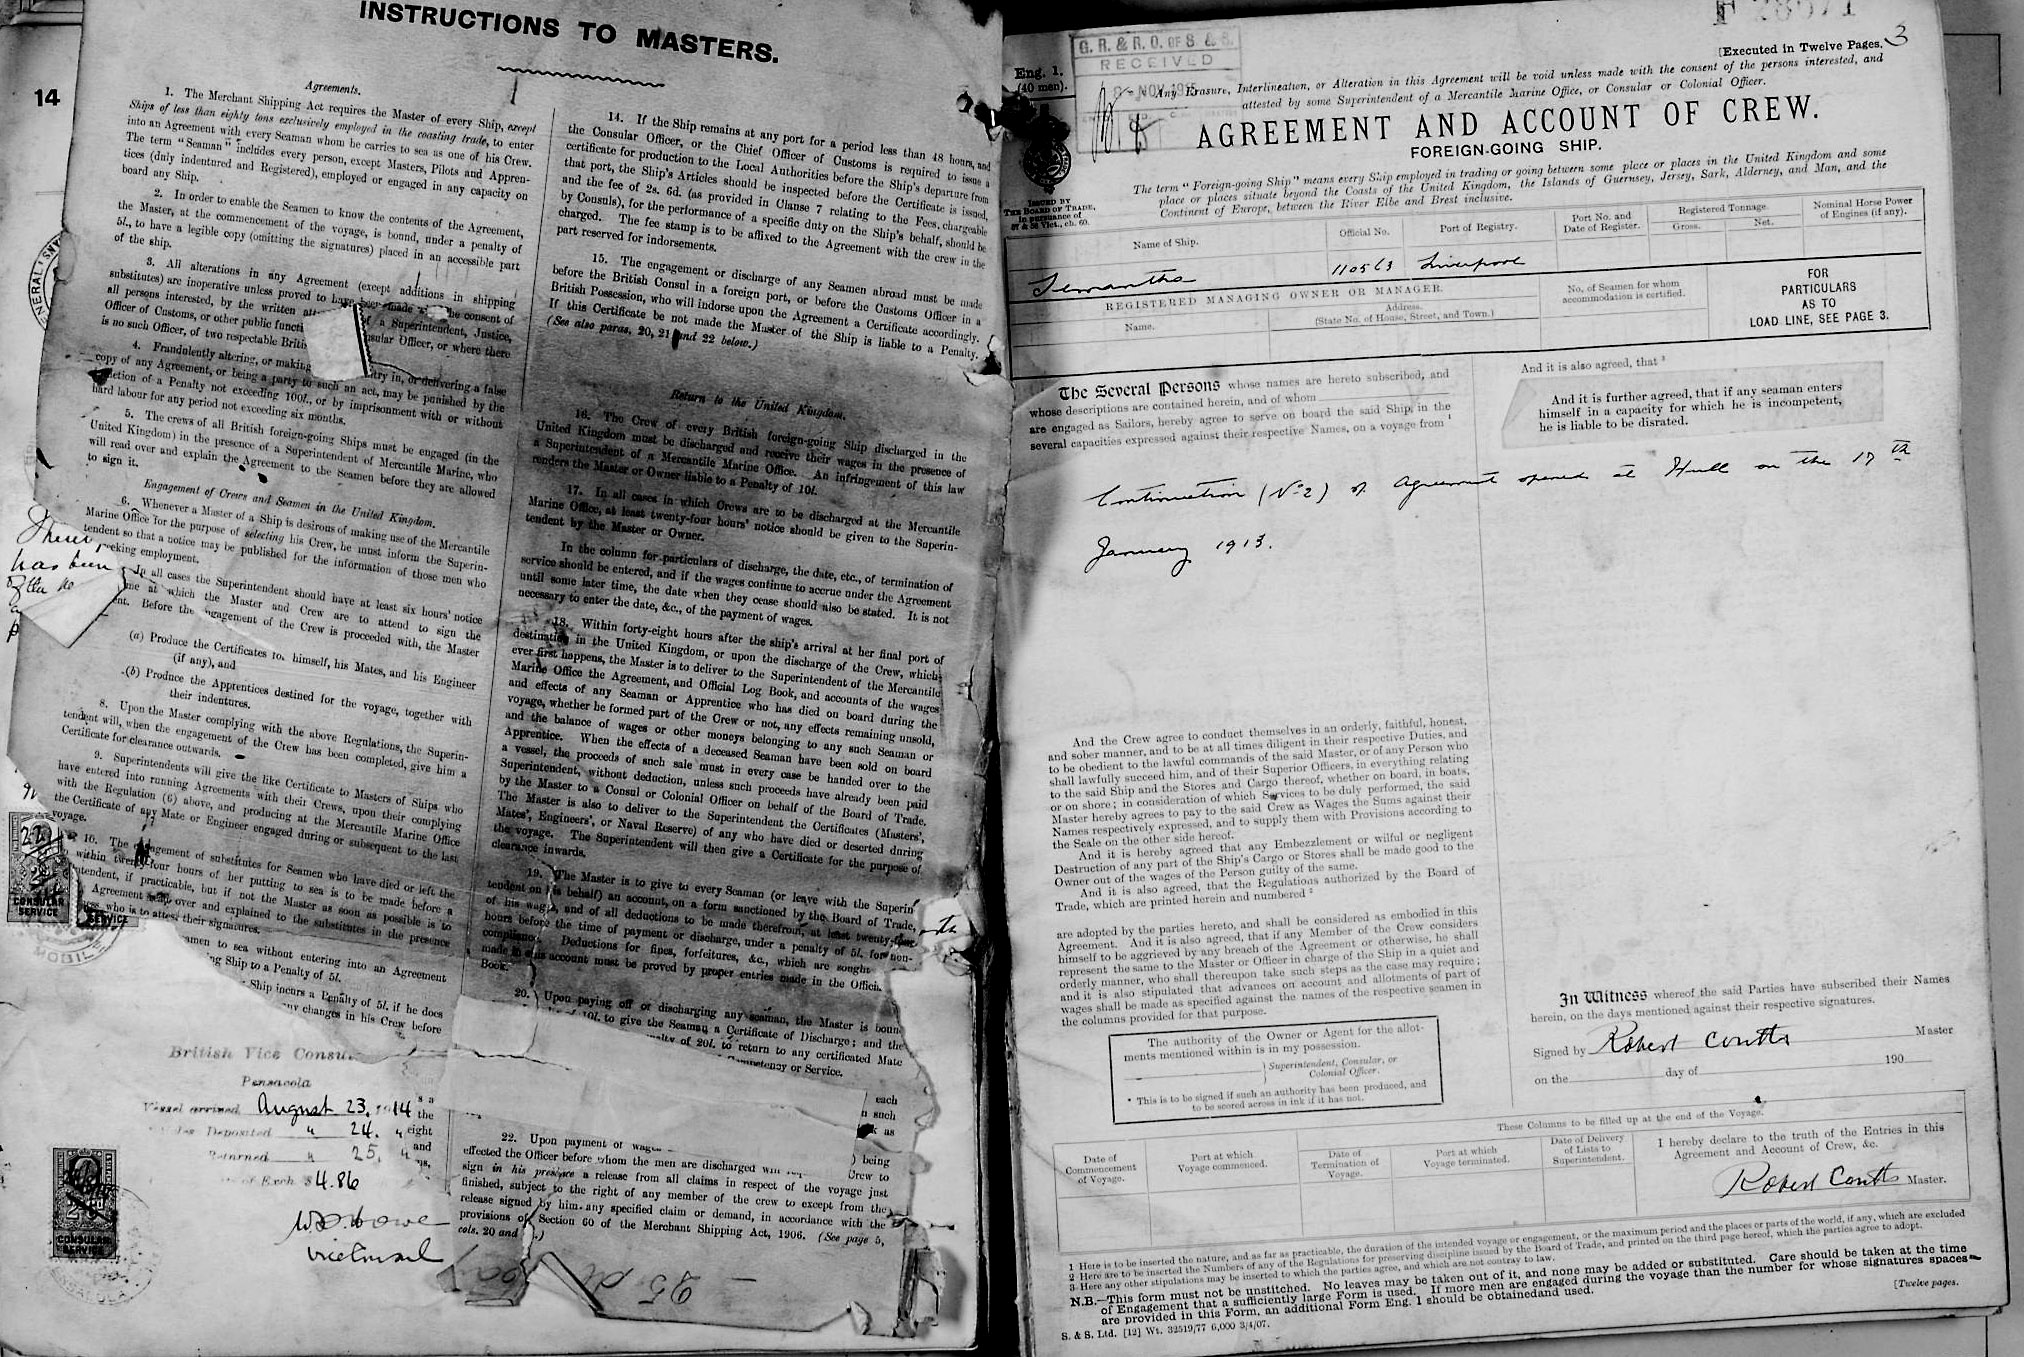 INSTRUCTIONS TO MASTERS.
14
Agreements.
1. The Merchant Shipping Act requires the Master of every Ship, except
Ships of less than eighty tons exclusively employed in the coasting trade, to enter
into an Agreement with every Seaman whom he carries to sea as one of his Crew.
The term "Seaman" includes every person, except Masters, Pilots and Appren-
tices (duly indentured and Registered), employed or engaged in any capacity on
board any Ship.
2. In order to enable the Seamen to know the contents of the Agreement,
the Master, at the commencement of the voyage, is bound, under a penalty of
5l., to have a legible copy (omitting the signatures) placed in an accessible part
of the ship.
3. All alterations in any Agreement (except additions in shipping
substitutes) are inoperative unless proved to have been made the consent of
all persons interested, by the written of a Superintendent, Justice,
Officer of Customs, or other public nsular Officer, or where there
is no such Officer, of two respectable
4. Fraudulently altering, or making try in, or delivering a false
copy of any Agreement, or being a party to such an act, may be punished by the
of a Penalty not exceeding 100l., or by imprisonment with or without
hard labour for any period not exceeding six months.
5. The crews of all British foreign-going Ships must be engaged (in the
United Kingdom) in the presence of a Superintendent of Mercantile Marine, who
will read over and explain the Agreement to the Seamen before they are allowed
to sign it.
Engagement of Crews and Seamen in the United Kingdom.
6. Whenever a Master of a Ship is desirous of making use of the Mercantile
Marine Office for the purpose of selecting his Crew, he must inform the Superin-
tendent so that a notice may be published for the information of those men who
eeking employment.
has been
In all cases the Superintendent should have at least six hours' notice
me at which the Master and Crew are to attend to sign the
ent. Before the ngagement of the Crew is proceeded with, the Master
(a) Produce the Certificates to himself, his Mates, and his Engineer
(if any), and
(b) Produce the Apprentices destined for the voyage, together with
their indentures.
8. Upon the Master complying with the above Regulations, the Superin-
tendent will, when the engagement of the Crew has been completed, give him a
Certificate for clearance outwards.
9. Superintendents will give the like Certificate to Masters of Ships who
have entered into running Agreements with their Crews, upon their complying
with the Regulation (6) above, and producing at the Mercantile Marine Office
the Certificate of any Mate or Engineer engaged during or subsequent to the last
voyage.
10. The engagement of substitutes for Seamen who have died or left the
within twenty-four hours of her putting to sea is to be made before a
tendent, if practicable, but if not the Master as soon as possible is to
Agreement over and explained to the substitutes in the presence
who is to attest their signatures.
amen to sea without entering into an Agreement
ing Ship to a Penalty of 5l.
Ship incurs a Penalty of 5l. if he does
any changes in his Crew before
CONSULAR
SERVICE
SERVICE
MOBIL
British Vice Consu
Pensacola
Vessel arrived August 23, 1914
Deposited " 24. "
Returned " 25. "
of Exch $4.86
Vice Consul
CONSULAR
SERVICE
14. If the Ship remains at any port for a period less than 48 hours, and
the Consular Officer, or the Chief Officer of Customs is required to issue a
certificate for production to the Local Authorities before the Ship's departure from
that port, the Ship's Articles should be inspected before the Certificate is issued,
and the fee of 2s. 6d. (as provided in Clause 7 relating to the Fees, chargeable
by Consuls), for the performance of a specific duty on the Ship's behalf, should be
charged. The fee stamp is to be affixed to the Agreement with the crew in the
part reserved for indorsements.
15. The engagement or discharge of any Seamen abroad must be made
before the British Consul in a foreign port, or before the Customs Officer in a
British Possession, who will indorse upon the Agreement a Certificate accordingly.
If this Certificate be not made the Master of the Ship is liable to a Penalty.
(See also paras, 20, 21 and 22 below.)
Return to the United Kingdom.
16. The Crew of every British foreign-going Ship discharged in the
United Kingdom must be discharged and receive their wages in the presence of
a Superintendent of a Mercantile Marine Office. An infringement of this law
renders the Master or Owner liable to a Penalty of 10l.
17. In all cases in which Crews are to be discharged at the Mercantile
Marine Office, at least twenty-four hours' notice should be given to the Superin-
tendent by the Master or Owner.
In the column for particulars of discharge, the date, etc., of termination of
service should be entered, and if the wages continue to accrue under the Agreement
until some later time, the date when they cease should also be stated. It is not
necessary to enter the date, &c., of the payment of wages.
18. Within forty-eight hours after the ship's arrival at her final port of
destination in the United Kingdom, or upon the discharge of the Crew, which
ever first happens, the Master is to deliver to the Superintendent of the Mercantile
Marine Office the Agreement, and Official Log Book, and accounts of the wages
and effects of any Seaman or Apprentice who has died on board during the
voyage, whether he formed part of the Crew or not, any effects remaining unsold,
and the balance of wages or other moneys belonging to any such Seaman or
Apprentice. When the effects of a deceased Seaman have been sold on board
a vessel, the proceeds of such sale must in every case be handed over to the
Superintendent, without deduction, unless such proceeds have already been paid
by the Master to a Consul or Colonial Officer on behalf of the Board of Trade.
The Master is also to deliver to the Superintendent the Certificates (Masters',
Mates', Engineers', or Naval Reserve) of any who have died or deserted during
the voyage. The Superintendent will then give a Certificate for the purpose of
clearance inwards.
19. The Master is to give to every Seaman (or leave with the Superin
tendent on his behalf) an account, on a form sanctioned by the Board of Trade,
of his wages, and of all deductions to be made therefrom, at least twenty-four
hours before the time of payment or discharge, under a penalty of 5l. for non-
compliance. Deductions for fines, forfeitures, &c., which are sought
made in this account must be proved by proper entries made in the Officia
Book.
20. Upon paying off or discharging any seaman, the Master is boun
of 10l. to give the Seaman a Certificate of Discharge; and the
nalty of 20l. to return to any certificated Mate
mpetency or Service.
each
such
as
22. Upon payment of wages being
effected the Officer before whom the men are discharged will Crew to
sign in his presence a release from all claims in respect of the voyage just
finished, subject to the right of any member of the crew to except from the
release signed by him any specified claim or demand, in accordance with the
provisions of Section 60 of the Merchant Shipping Act, 1906. (See page 5,
cols. 20 and .)
3
[Executed in Twelve Pages.
G. R. & R. O. OF S. & S.
RECEIVED
NOV 19
Eng. 1.
(40 men).
Any Erasure, Interlineation, or Alteration in this Agreement will be void unless made with the consent of the persons interested, and
attested by some Superintendent of a Mercantile Marine Office, or Consular or Colonial Officer.
AGREEMENT AND ACCOUNT OF CREW.
FOREIGN-GOING SHIP.
ISSUED BY
THE BOARD OF TRADE,
in pursuance of
57 & 58 Vict., ch. 60.
The term "Foreign-going Ship" means every Ship employed in trading or going between some place or places in the United Kingdom and some
place or places situate beyond the Coasts of the United Kingdom, the Islands of Guernsey, Jersey, Sark, Alderney, and Man, and the
Continent of Europe, between the River Elbe and Brest inclusive.
Name of Ship. Official No. Port of Registry. Port No. and Date of Register. Registered Tonnage. Gross. Net. Nominal Horse Power of Engines (if any).
110563 Liverpool
REGISTERED MANAGING OWNER OR MANAGER.
Name. Address. (State No. of House, Street, and Town.)
No. of Seamen for whom
accommodation is certified.
FOR
PARTICULARS
AS TO
LOAD LINE, SEE PAGE 3.
The Several Persons whose names are hereto subscribed, and
whose descriptions are contained herein, and of whom
are engaged as Sailors, hereby agree to serve on board the said Ship, in the
several capacities expressed against their respective Names, on a voyage from 1
And it is also agreed, that 3
And it is further agreed, that if any seaman enters
himself in a capacity for which he is incompetent,
he is liable to be disrated.
Continuation (No 2) of Agreement opened at Hull on the 17th
January 1913.
And the Crew agree to conduct themselves in an orderly, faithful, honest,
and sober manner, and to be at all times diligent in their respective Duties, and
to be obedient to the lawful commands of the said Master, or of any Person who
shall lawfully succeed him, and of their Superior Officers, in everything relating
to the said Ship and the Stores and Cargo thereof, whether on board, in boats,
or on shore; in consideration of which Services to be duly performed, the said
Master hereby agrees to pay to the said Crew as Wages the Sums against their
Names respectively expressed, and to supply them with Provisions according to
the Scale on the other side hereof.
And it is hereby agreed that any Embezzlement or wilful or negligent
Destruction of any part of the Ship's Cargo or Stores shall be made good to the
Owner out of the wages of the Person guilty of the same.
And it is also agreed, that the Regulations authorized by the Board of
Trade, which are printed herein and numbered 2
are adopted by the parties hereto, and shall be considered as embodied in this
Agreement. And it is also agreed, that if any Member of the Crew considers
himself to be aggrieved by any breach of the Agreement or otherwise, he shall
represent the same to the Master or Officer in charge of the Ship in a quiet and
orderly manner, who shall thereupon take such steps as the case may require;
and it is also stipulated that advances on account and allotments of part of
wages shall be made as specified against the names of the respective seamen in
the columns provided for that purpose.
The authority of the Owner or Agent for the allot-
ments mentioned within is in my possession.
Superintendent, Consular, or
Colonial Officer.
* This is to be signed if such an authority has been produced, and
to be scored across in ink if it has not.
In Witness whereof the said Parties have subscribed their Names
herein, on the days mentioned against their respective signatures.
Signed by Robert Coutts Master
on the day of 190
These Columns to be filled up at the end of the Voyage.
Date of Commencement of Voyage. Port at which Voyage commenced. Date of Termination of Voyage. Port at which Voyage terminated. Date of Delivery of Lists to Superintendent.
I hereby declare to the truth of the Entries in this
Agreement and Account of Crew, &c.
Robert Coutts Master.
1 Here is to be inserted the nature, and as far as practicable, the duration of the intended voyage or engagement, or the maximum period and the places or parts of the world, if any, which are excluded
2 Here are to be inserted the Numbers of any of the Regulations for preserving discipline issued by the Board of Trade, and printed on the third page hereof, which the parties agree to adopt.
3 Here any other stipulations may be inserted to which the parties agree, and which are not contrary to law.
N.B.—This form must not be unstitched. No leaves may be taken out of it, and none may be added or substituted. Care should be taken at the time
of Engagement that a sufficiently large Form is used. If more men are engaged during the voyage than the number for whose signatures spaces
are provided in this Form, an additional Form Eng. 1 should be obtained and used.
S. & S. Ltd. [12] Wt. 32519/77 6,000 3/4/07.
[Twelve pages.